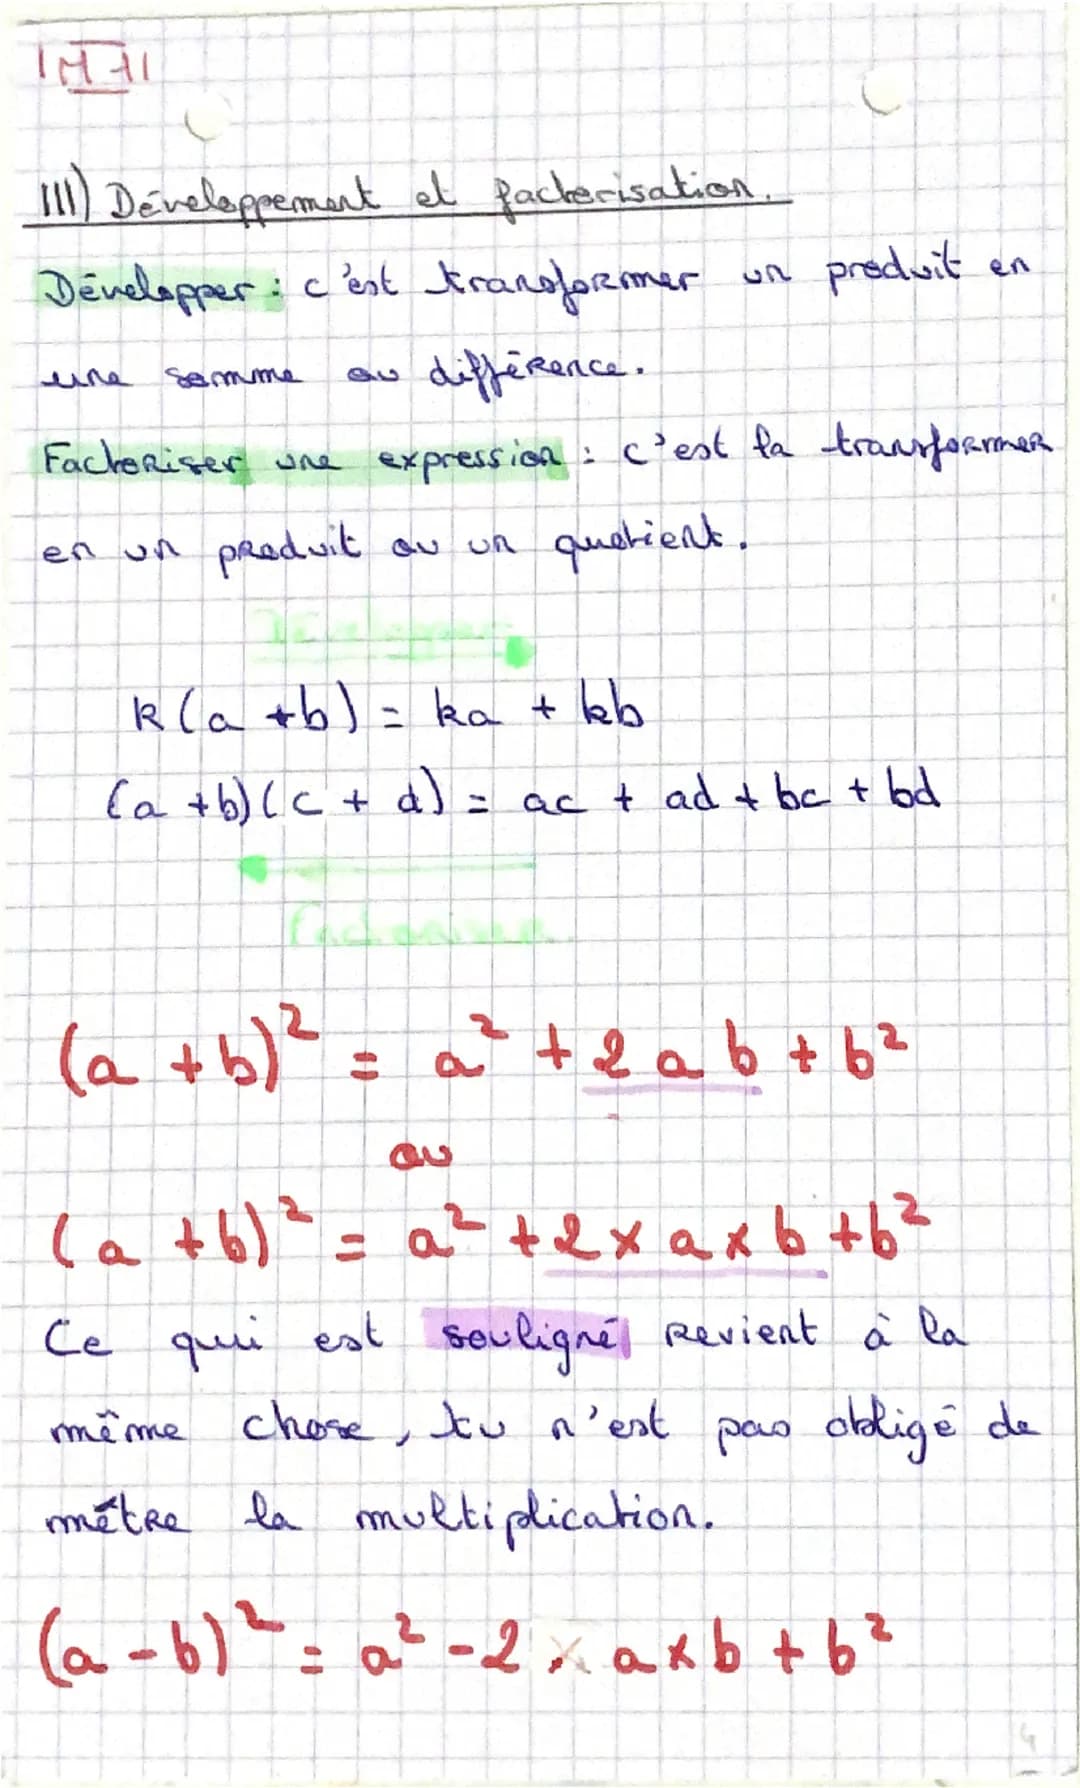 III) Développement et factorisation.
Développer : c'est transformer un produit en
une somme ou différence.
Factoriser une expression : c'est la transformer
en un produit ou un quotient.
Développer
k(a +b) = ka + kb
(a +b)(c + d) = ac + ad + bc + bd
Factoriser
(a +b)² = a² + 2 a b + b²
ou
(a +b)² = a² + 2 × a × b + b²
Ce qui est souligné revient à la
même chose, tu n'est pas obligé de
mêtre la multiplication.
(a - b)² = a² - 2 × a × b + b²
4